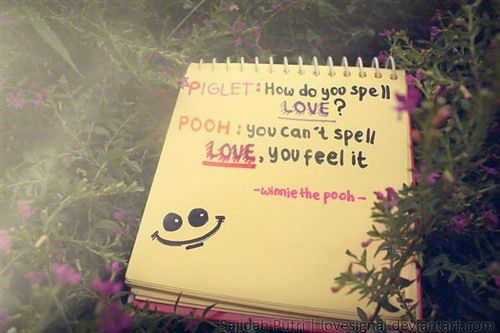 *PIGLET: How do you spell
LOVE?
POOH: you can't spell
LOVE, you feel it
-winnie the pooh-
Sajidah Putri | lovesignal.deviantart.com